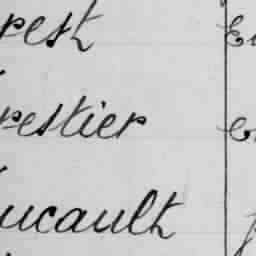 rest
restier
ucault